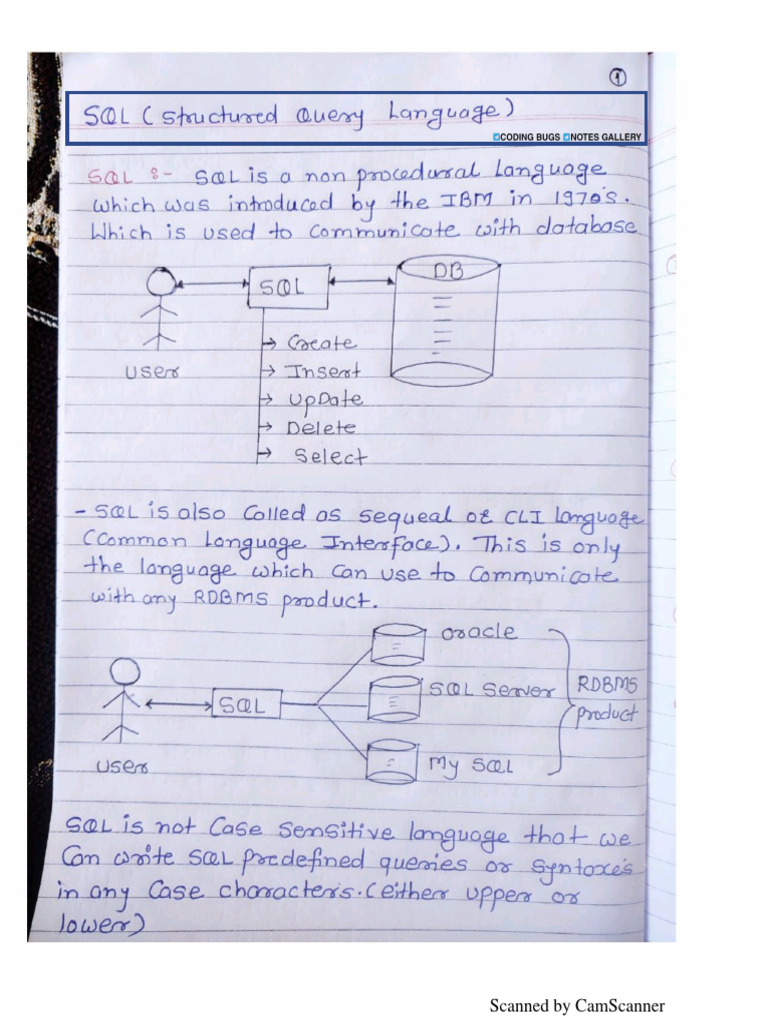 1
SQL (Structured Query Language)
CODING BUGS NOTES GALLERY
SQL :- SQL is a non procedural Language
which was introduced by the IBM in 1970's.
Which is used to communicate with database
DB
SQL
User
→ Create
→ Insert
→ UpDate
→ Delete
→ Select
- SQL is also Called as sequeal or CLI language
(Common Language Interface). This is only
the language which can use to communicate
with any RDBMS product.
Oracle
SQL Server
RDBMS
SQL
product
User
My SQL
SQL is not Case sensitive language that we
Can write SQL predefined queries or syntaxes
in any Case characters. (either upper or
lower)
Scanned by CamScanner